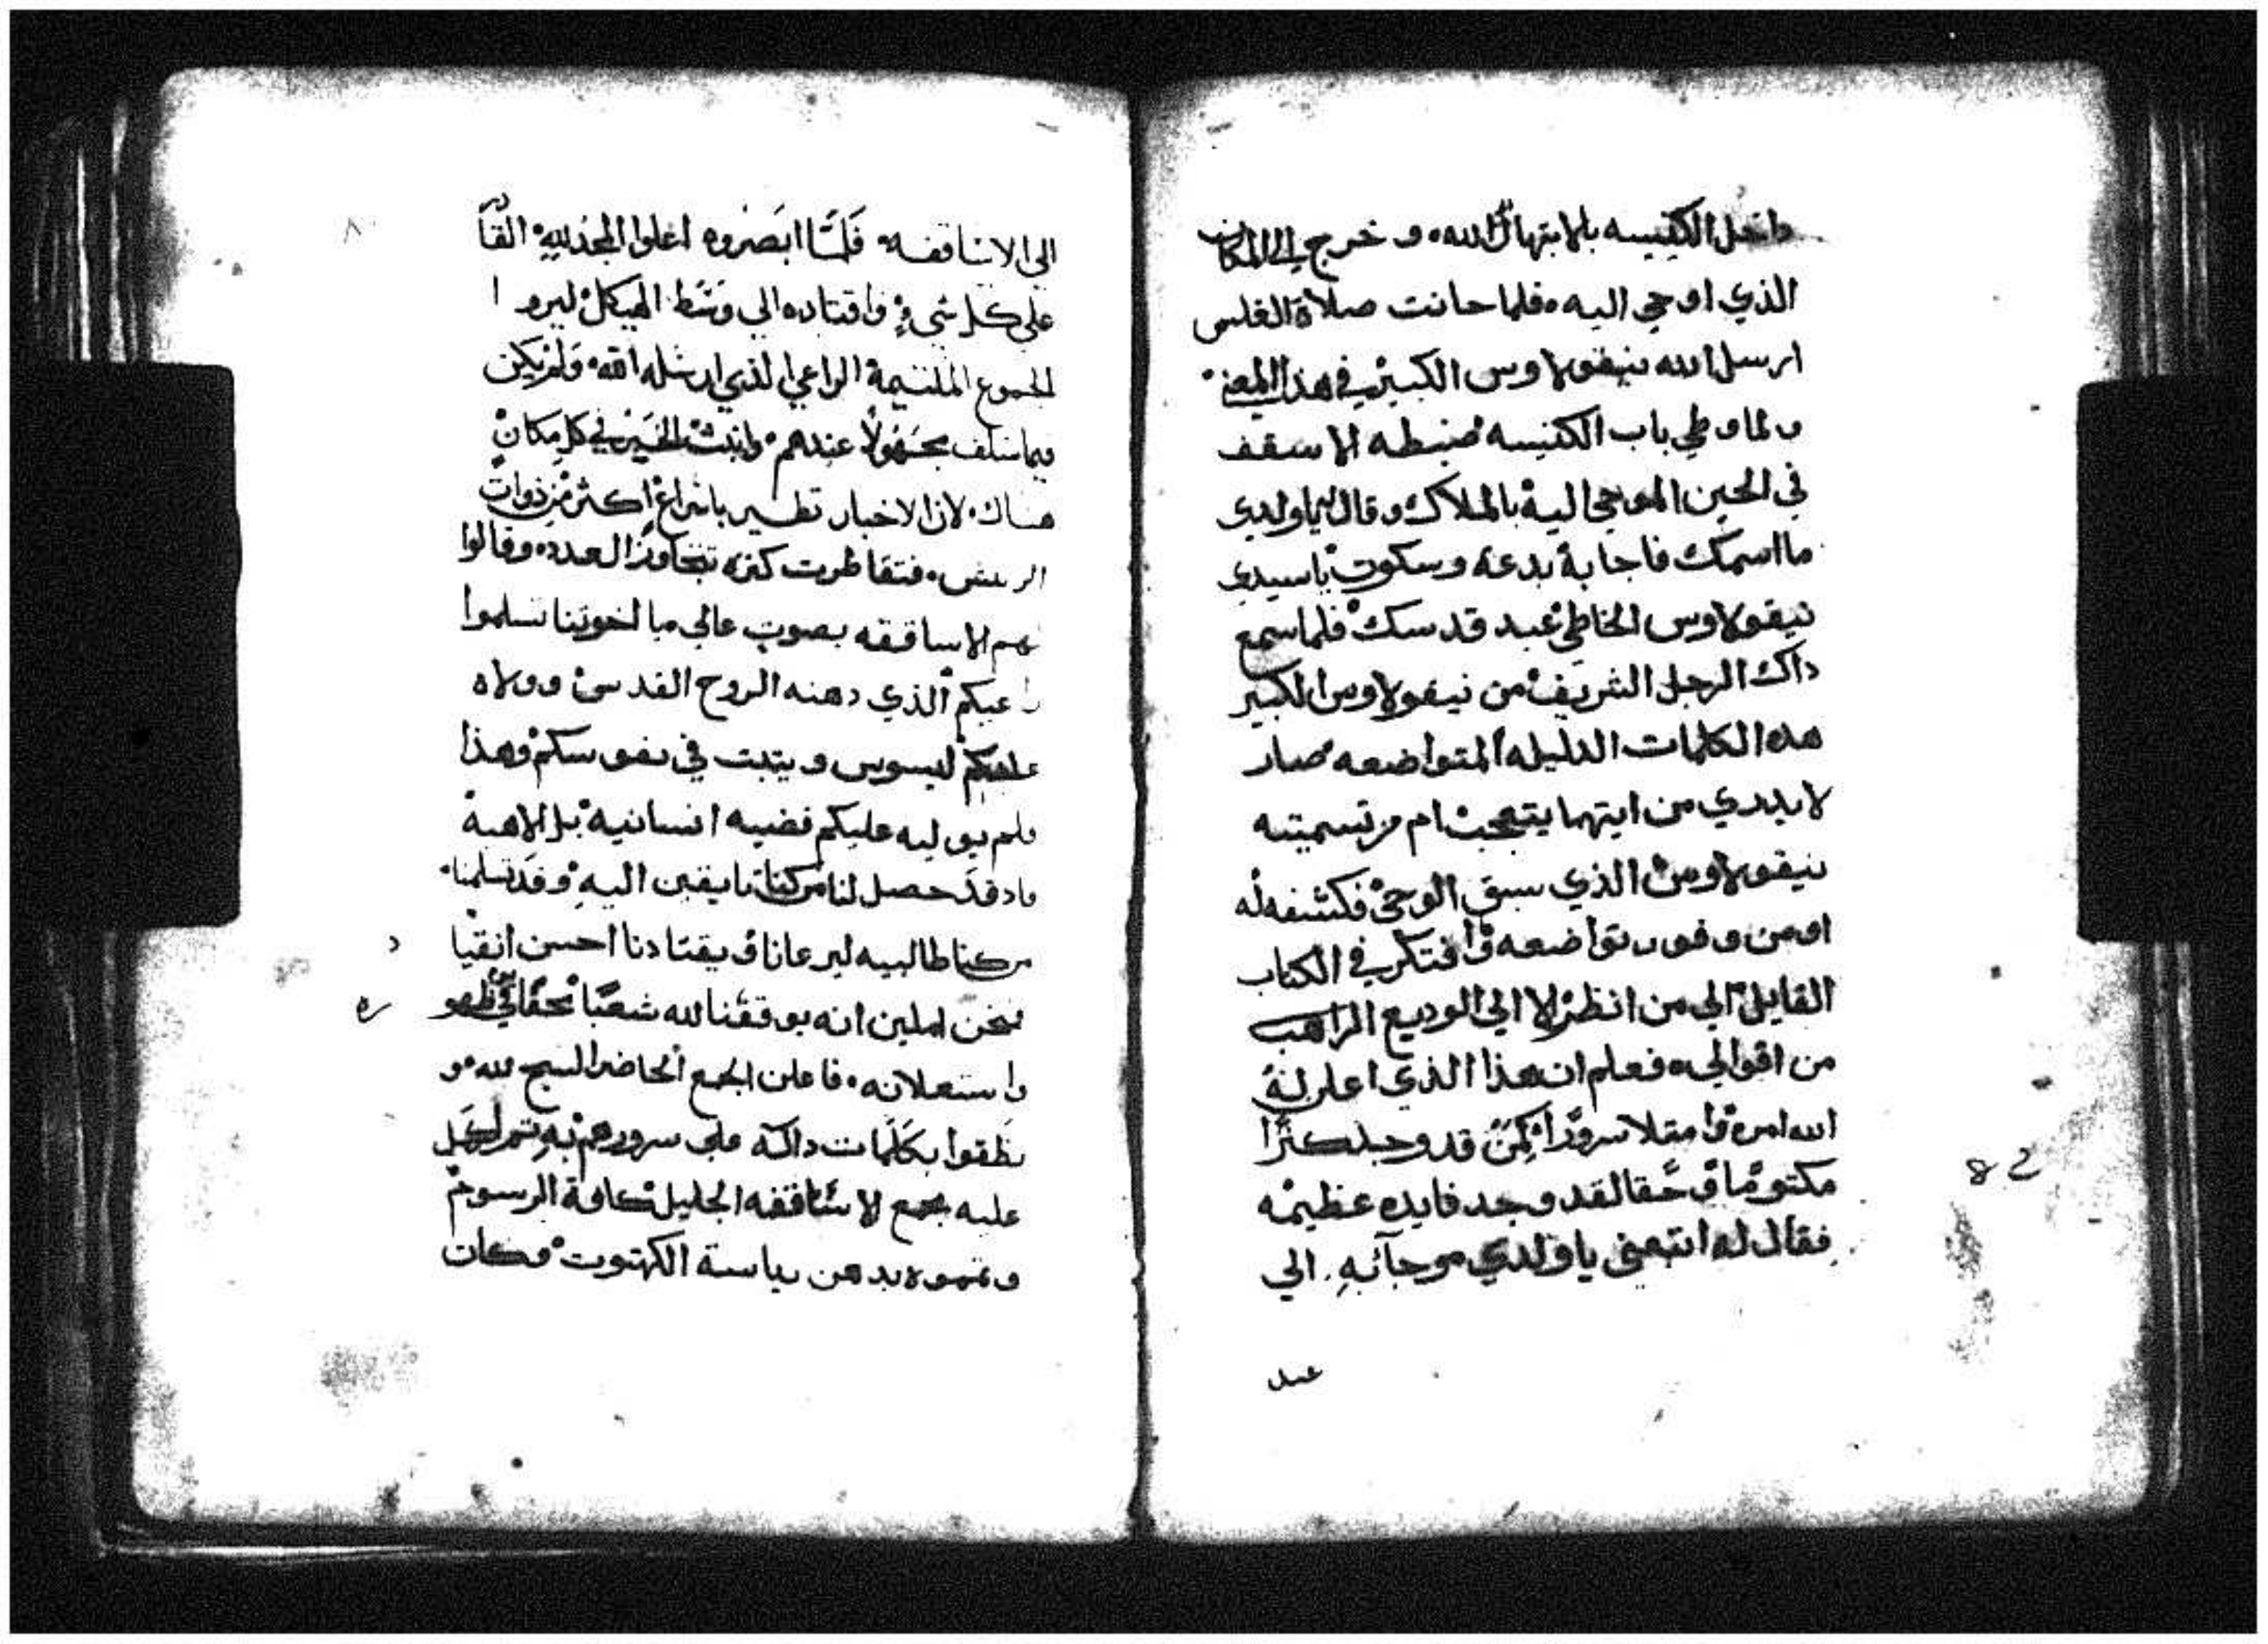 داخل الكنيسه بالابتهال لله و خرج الي المكان
الذي اوحي اليه فلما حانت صلاة الغلس
ارسل الله نيقولاوس الكبير في هذا المعني
ولما وطي باب الكنيسه ضبطه الاسقف
في الحين الموحي اليه بالملاك وقال يا ولدي
ما اسمك فاجابه بدعه وسكوت يا سيدي
نيقولاوس الخاطي عبد قدسك فلما سمع
داك الرجل الشريف من نيقولاوس الكبير
هده الكلمات الدليله المتواضعه صار
لا يدري من ايتهما يتعجب ام من تسميته
نيقولاوس الذي سبق الوحي فكشفه له
او من وفور تواضعه وافتكر في الكتاب
القايل الي من انظر الا الي الوديع الراهب
من اقوالي فعلم ان هذا الذي اعلن له
الله امره وامتلا سرورًا كمن قد وجد كنزًا
مكتومًا وحقا لقد وجد فايده عظيمه
فقال له اتبعني يا ولدي موجآئه الي
عند
82
الي الاساقفه فلما ابصروه اعلوا المجد لله القا
در
علي كل شي واقتاده الي وسط الهيكل ليروا
الجموع الملتيمة الراعي الذي ارسله الله ولم يكن
فيما سلف مجهولًا عندهم وانبث الخبر في كل مكان
هناك لان الاخبار تطير باسراع اكثر من ذوات
الريش فتقاطرت كثره تتجاوز العدد وقالوا
لهم الاساقفه بصوت عالي يا اخوتنا تسلموا
راعيكم الذي دهنه الروح القدس وولاه
عليكم ليسوس ويتبت في نفوسكم وهذا
فلم يوليه عليكم قضيه انسانيه بل الاهية
وادقد حصل لنا من كنا تايقين اليه وقد تسلمنا
من كنا طالبيه ليرعانا ويقتادنا احسن انقيا
د
فنحن املين انه يوقفنا لله شعبًا نحقا في ظهو
ره
واستعلانه فاعلن الجمع الحاضر السبح لله و
نطقوا بكلمات داله علي سرورهم به تم اكمل
عليه مجمع الاساقفه الجليل كافة الرسوم
وتمموه بدهن رياسة الكهنوت وكان